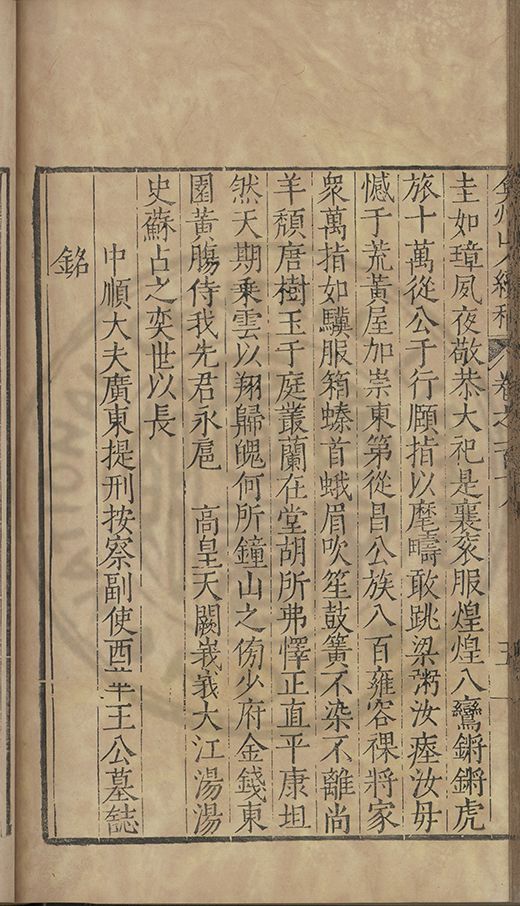 弇州山人續稿 卷之一百十八 五
圭如璋夙夜敬恭大祀是襄袞服煌煌八鸞鏘鏘虎
旅十萬從公于行頤指以麾疇敢跳梁粥汝瘞汝毋
憾于荒黃屋加崇東第從昌公族八百雍容祼將家
衆萬指如驥服箱螓首蛾眉吹笙鼓簧不染不離尚
羊頹唐樹玉于庭叢蘭在堂胡所弗懌正直平康坦
然天期乘雲以翔歸魄何所鐘山之傍少府金錢東
園黃腸侍我先君永扈 高皇天闕峩峩大江湯湯
史蘇占之奕世以長
中順大夫廣東提刑按察副使酉羊王公墓誌
銘